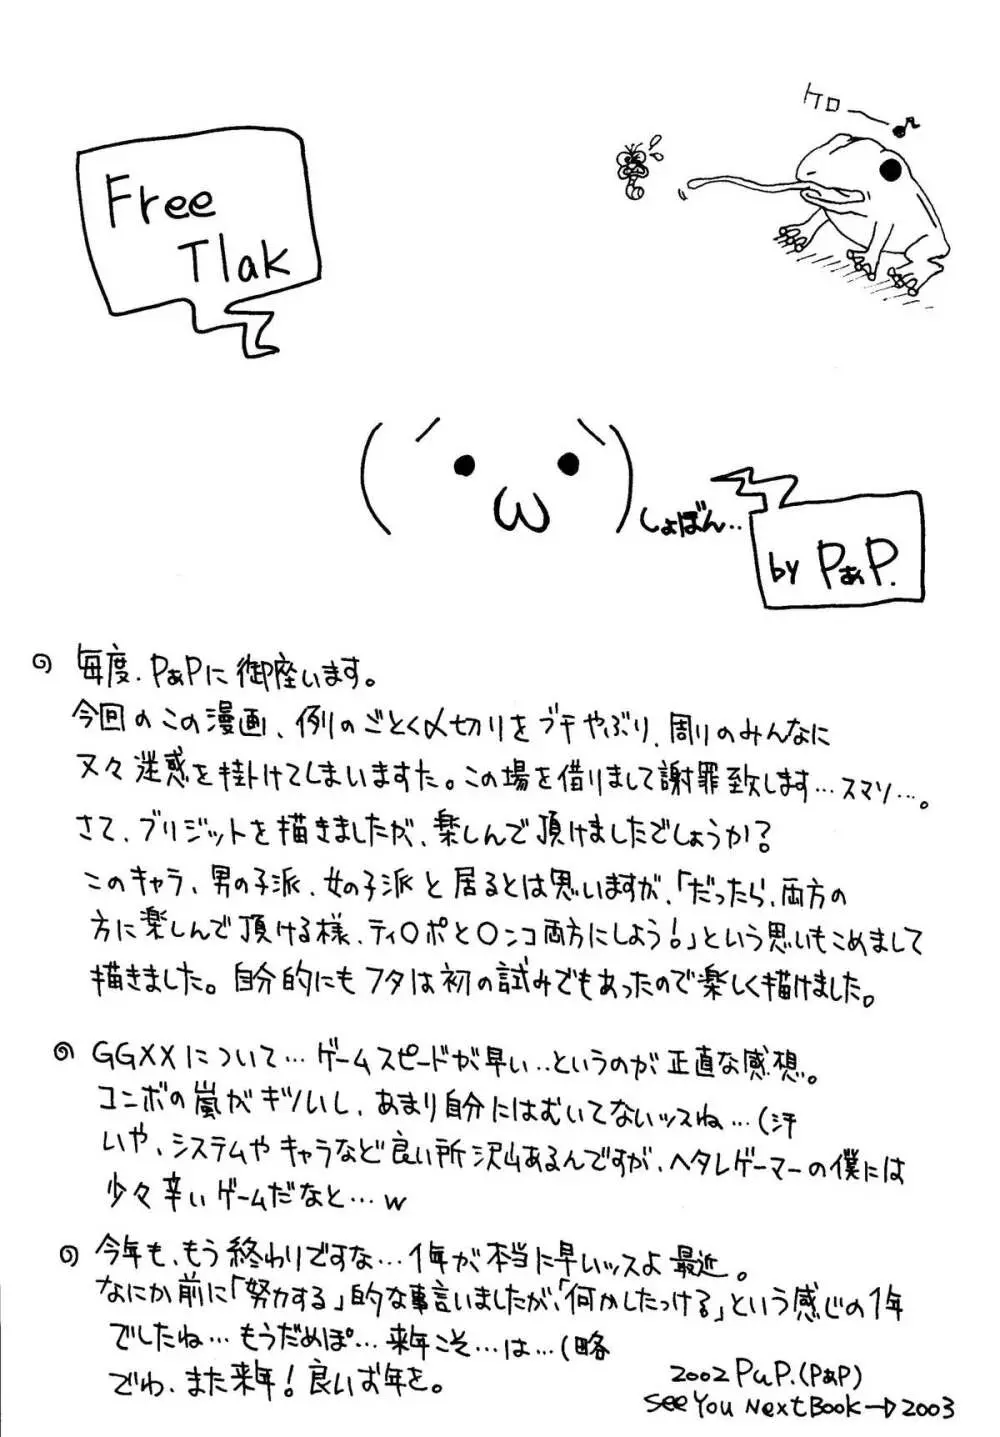 ケロ
Free
Tlak
(´・ω・`)しょぼん..
by PあP.
毎度、PあPに御座います。
今回のこの漫画、例のごとく〆切りをブチやぶり、周りのみんなに
又々迷惑を掛けてしまいますた。この場を借りまして謝罪致します…スマソ…。
さて、ブリジットを描きましたが、楽しんで頂けましたでしょうか?
このキャラ、男の子派、女の子派と居るとは思いますが、「だったら、両方の
方に楽しんで頂ける様、ティ〇ポと〇ンコ両方にしよう!」という思いもこめまして
描きました。自分的にもフタは初の試みでもあったので楽しく描けました。
GGXXについて…ゲームスピードが早い..というのが正直な感想。
コンボの嵐がキツいし、あまり自分にはむいてないッスね…(汗
いや、システムやキャラなど良い所沢山あるんですが、ヘタレゲーマーの僕には
少々辛いゲームだなと…w
今年も、もう終わりですな…1年が本当に早いッスよ最近。
なにか前に「努力する」的な事言いましたが、「何かしたっける」という感じの1年
でしたね…もうだめぽ…来年こそ…は…(略
でわ、また来年!良いお年を。
2002 PuP.(PあP)
See You Next Book→2003